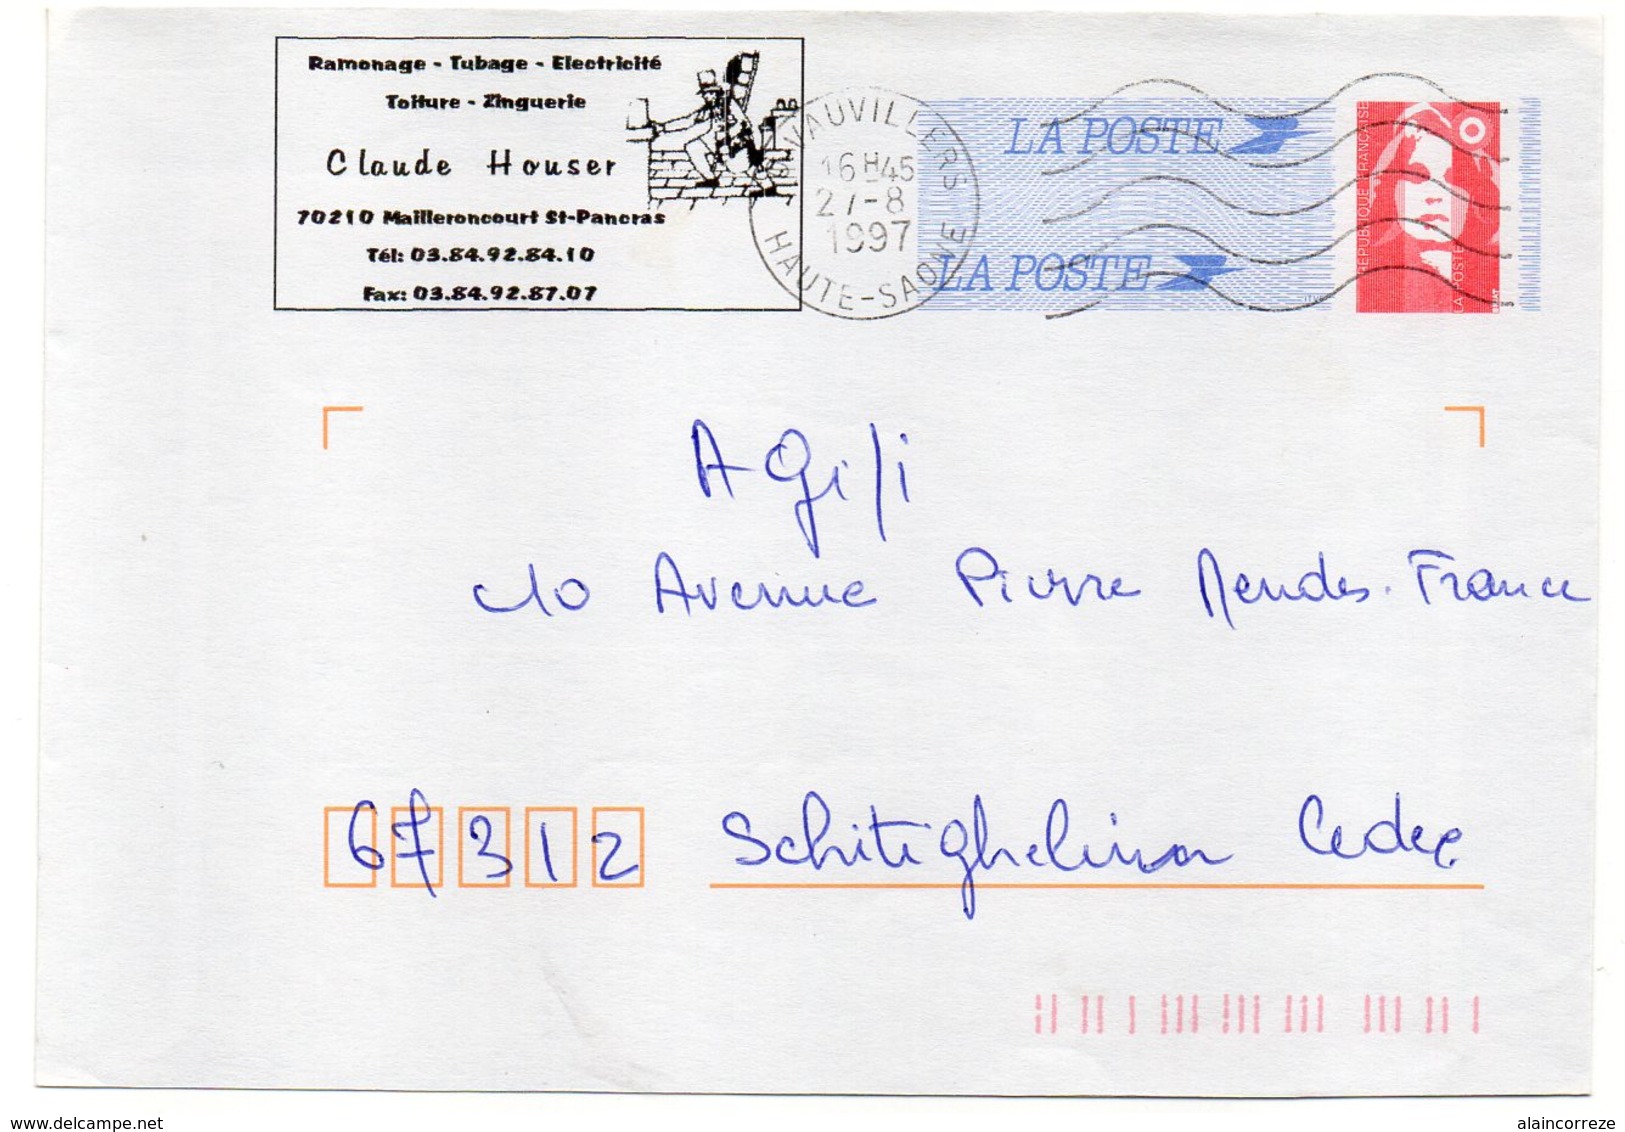 Ramonage - Tubage - Electricité
Toiture - Zinguerie
Claude Houser
70210 Mailleroncourt St-Pancras
Tél: 03.84.92.84.10
Fax: 03.84.92.87.07
VAUVILLERS
16 H 45
27-8
1997
HAUTE-SAONE
LA POSTE
LA POSTE
REPUBLIQUE FRANÇAISE
LA POSTE
AGifi
10 Avenue Pierre Mendes-France
67312 Schitighelinon Cedec
www.delcampe.net
alaincorreze